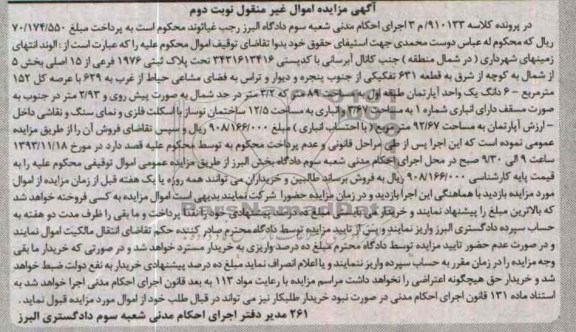 آگهی مزایده اموال غیر منقول نوبت دوم
در پرونده کلاسه ۹۱۰۱۳۳/م ۳ اجرای احکام مدنی شعبه سوم دادگاه البرز رجب غیاثوند محکوم است به پرداخت مبلغ ۷۰/۱۷۴/۵۵۰
ریال که محکوم له عباس دوست محمدی جهت استیفای حقوق خود بدوا تقاضای توقیف اموال محکوم علیه را که عبارت است از : الوند انتهای
زمینهای شهرداری ( در شمال منطقه ) جنب کانال آبرسانی با کدپستی ۳۴۳۱۶۱۳۴۱۶ تحت پلاک ثبتی ۱۹۷۶ فرعی از ۱۵ اصلی بخش ۵
از شمال به کوچه از شرق به قطعه ۶۳۱ تفکیکی از جنوب پنجره و دیوار و تراس به فضای مشاعی حیاط از غرب به ۶۲۹ با عرصه کل ۱۵۲
مترمربع - ۶ دانگ یک واحد آپارتمان طبقه اول به مساحت ۸۹ که ۳/۲ متر در حد شمال به صورت پیش روی و ۲/۹۳ متر در جنوب به
صورت مسقف دارای انباری شماره ۱ به مساحت ۳/۶۷ با انباری به مساحت ۱۲/۵ ساختمان نوساز با اسکلت فلزی و نمای سنگ و نقاشی داخل
- ارزش آپارتمان به مساحت ۹۲/۶۷ متر مربع ( با احتساب انباری ) مبلغ ۹۰۸/۱۶۶/۰۰۰ ریال و سپس تقاضای فروش آن را از طریق مزایده
عمومی نموده است که این اجرا پس از طی مراحل قانونی و عدم پرداخت محکوم به توسط محکوم علیه قصد دارد در مورخ ۱۳۹۳/۱۱/۱۸
ساعت ۹ الی ۹/۳۰ صبح در محل اجرای احکام مدنی شعبه سوم دادگاه بخش البرز از طریق مزایده عمومی اموال توقیفی محکوم علیه را به
قیمت پایه کارشناسی ۹۰۸/۱۶۶/۰۰۰ ریال به فروش برساند طالبین و خریداران می توانند همه روزه یا یک هفته قبل از زمان مزایده از اموال
مورد مزایده بازدید با هماهنگی این اجرا بازدید و در زمان مزایده حضورا شرکت نمایند بدیهی است اموال مزایده به کسی فروخته خواهد شد
که بالاترین مبلغ را پیشنهاد نمایند و خریدار می بایست مبلغ ده درصد پیشنهادی خود را نقدا پرداخت و ما بقی را ظرف مدت دو هفته به
حساب سپرده دادگستری البرز واریز نمایند و پس از تایید مزایده توسط دادگاه محترم صادر کننده حکم تقاضای انتقال مالکیت اموال نمایند
و در صورت عدم حضور تایید مزایده توسط دادگاه محترم مبلغ ده درصد واریزی به خریدار مسترد خواهد شد و در صورتی که خریدار ما بقی
وجه مزایده را در زمان مقرر به حساب سپرده واریز ننمایند و یا اعلام انصراف نماید مبلغ ده درصد پیشنهادی خریدار به نفع دولت ضبط خواهد
شد و خریدار حق هیچگونه اعتراضی را نخواهد داشت مراسم مزایده با رعایت مواد ۱۱۳ به بعد قانون اجرای احکام مدنی اجرا خواهد شد به
استناد ماده ۱۳۱ قانون اجرای احکام مدنی در صورت نبود خریدار طلبکار نیز می تواند در قبال طلب خود از اموال مورد مزایده قبول نماید .
۲۶۱ مدیر دفتر اجرای احکام مدنی شعبه سوم دادگستری البرز